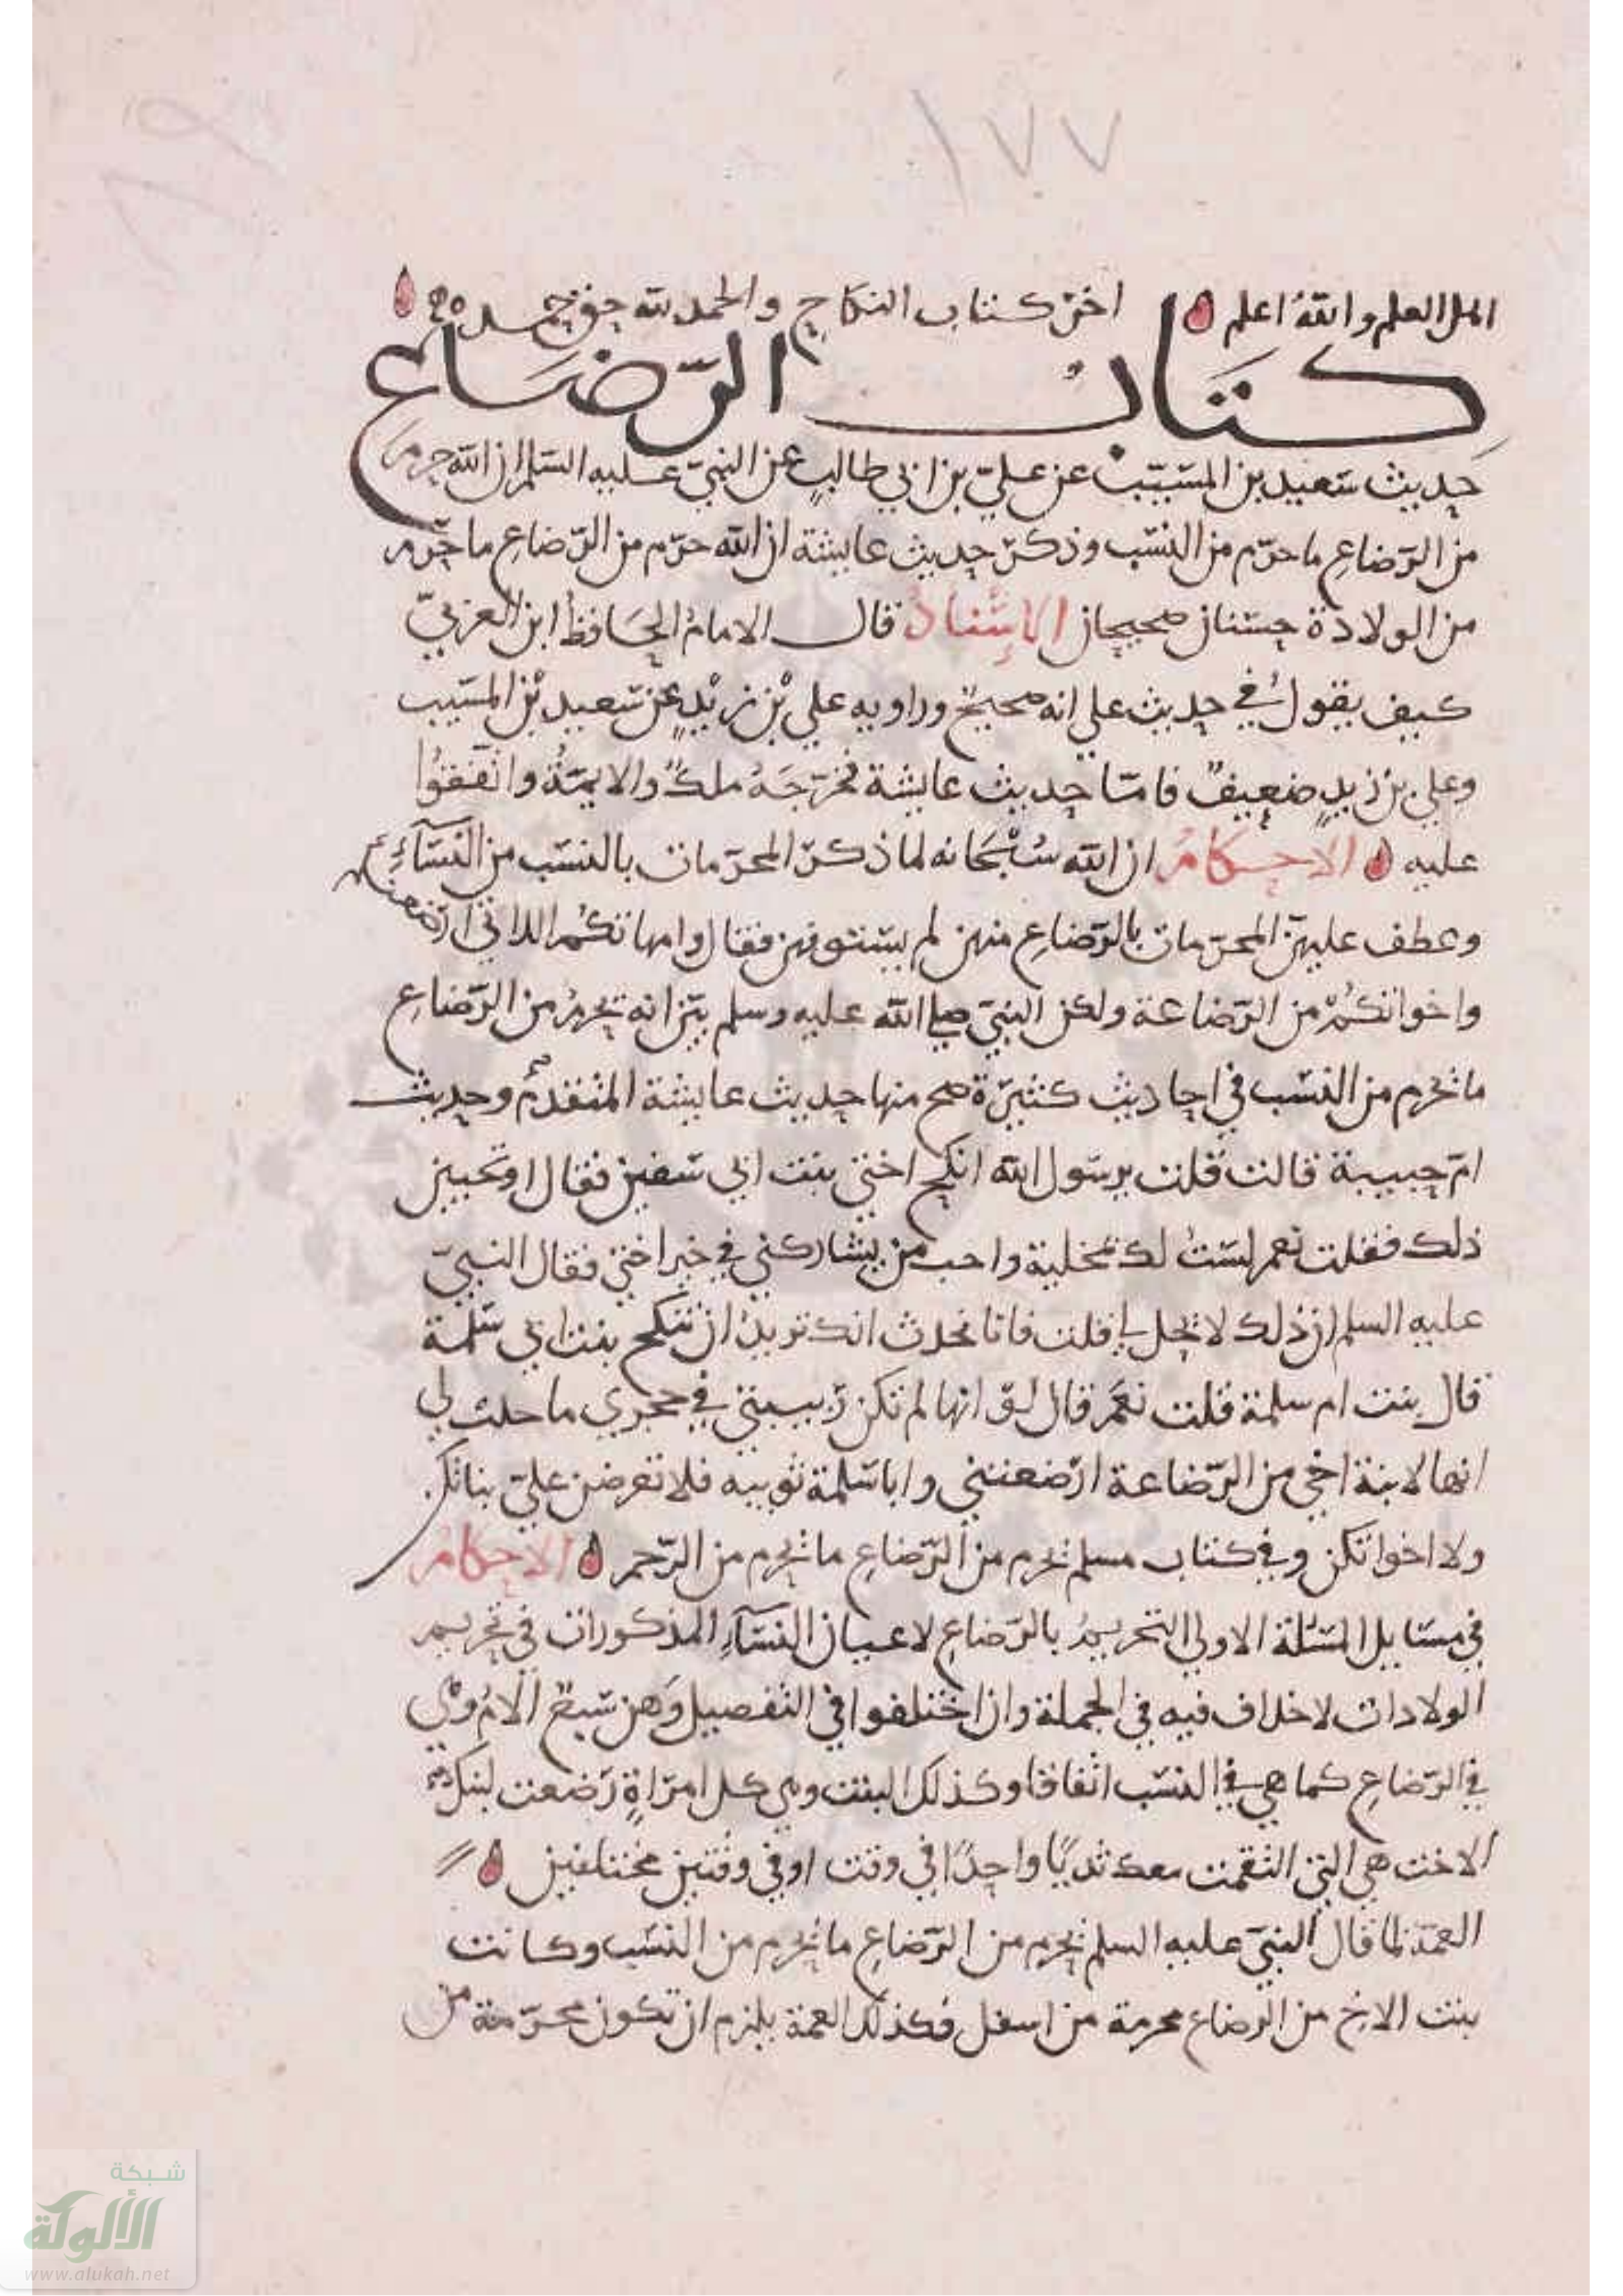 ١٧٧
اهل العلم والله اعلم اخر كتاب النكاح والحمد لله حق حمده
كتاب الرضاع
حديث سعيد بن المسيب عن علي بن ابي طالب عن النبي عليه السلم ان الله حرم
من الرضاع ما حرم من النسب وذكر حديث عايشة ان الله حرم من الرضاع ما حرم
من الولادة حسنان صحيحان الاسناد قال الامام الحافظ ابن العربي
كيف يقول في حديث علي انه صحيح وراويه علي بن زيد عن سعيد بن المسيب
وعلي بن زيد ضعيف فاما حديث عايشة فخرجه ملك والايمة واتفقوا
عليه الاحكام ان الله سبحانه لما ذكر المحرمات بالنسب من النساء
وعطف عليهن المحرمات بالرضاع منهن لم يستوفهن فقال وامهاتكم اللاتي ارضعنكم
واخواتكم من الرضاعة ولكن النبي صلى الله عليه وسلم بين انه يحرم من الرضاع
ما يحرم من النسب في احاديث كثيرة صح منها حديث عايشة المتقدم وحديث
ام حبيبة قالت قلت يرسول الله انكح اختي بنت ابي سفين فقال اوتحبين
ذلك فقلت نعم لست لك بمخلية واحب من يشاركني في خير اختي فقال النبي
عليه السلم ان ذلك لا يحل لي قلت فانا نحدث انك تريد ان تنكح بنت ابي سلمة
قال بنت ام سلمة قلت نعم قال لو انها لم تكن ربيبتي في حجري ما حلت لي
انها لابنة اخي من الرضاعة ارضعتني وابا سلمة ثويبه فلا تعرضن علي بناتكن
ولا اخواتكن وفي كتاب مسلم يحرم من الرضاع ما يحرم من الرحم الاحكام
في مسايل المسئلة الاولى التحريم بالرضاع لاعيان النساء المذكورات في تحريم
الولادات لا خلاف فيه في الجملة وان اختلفوا في التفصيل وهن سبع الام وهي
في الرضاع كما هي في النسب اتفاقا وكذلك البنت وهي كل امراة رضعت لبنك
الاخت هي التي التقمت معك ثديا واحدا في وقت او في وقتين مختلفين
العمة لما قال النبي عليه السلم يحرم من الرضاع ما يحرم من النسب وكانت
بنت الاخ من الرضاع محرمة من اسفل فكذلك العمة يلزم ان تكون محرمة من
شبكة
الألوكة
www.alukah.net